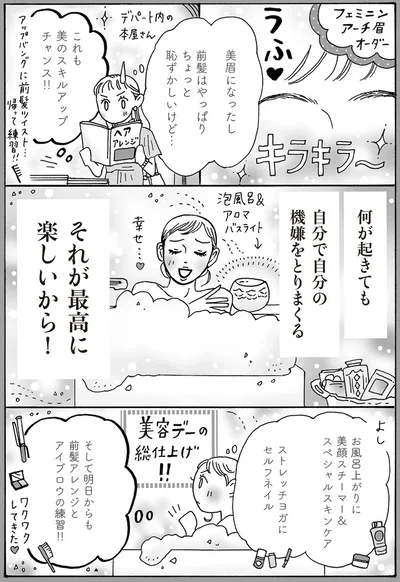 フェミニン
アーチ眉
オーダー
うふ♥
キラキラ〜
美眉になったし
前髪はやっぱり
ちょっと
恥ずかしいけど…
デパート内の
本屋さん
ヘア
アレンジ
これも
美のスキルアップ
チャンス!!
アップバングに前髪ツイスト…
帰って練習!!
何が起きても
自分で自分の
機嫌をとりまくる
泡風呂&
アロマ
バスライト
幸せ…♥
それが最高に
楽しいから!
よし
お風呂上がりに
美顔スチーマー&
スペシャルスキンケア
ストレッチヨガに
セルフネイル
美容デーの
総仕上げ!!
!!
そして明日からも
前髪アレンジと
アイブロウの練習!!
ワクワク
してきた♥